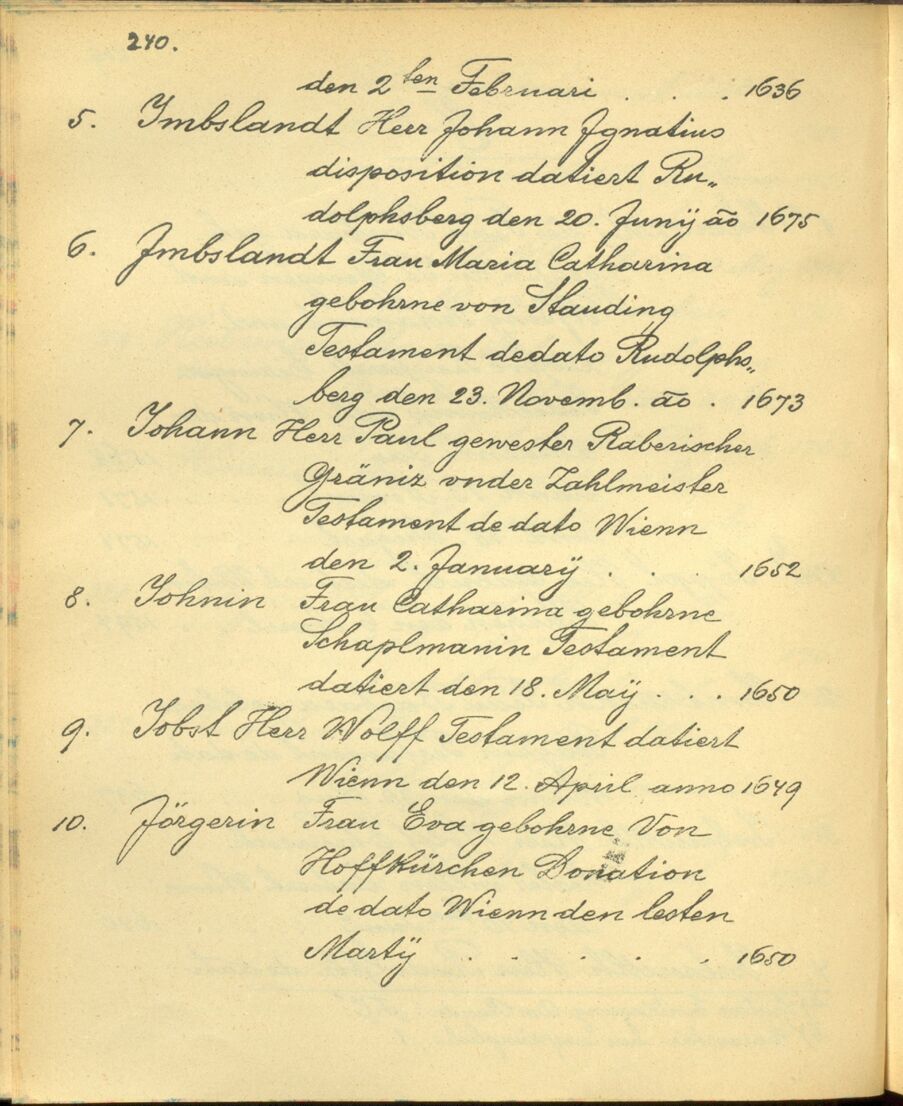 240.
den 2ten Februari . . . 1636
5. Imbslandt Herr Johann Ignatius
disposition datiert Ru„
dolphsberg den 20. Junÿ ao 1675
6. Imbslandt Frau Maria Catharina
gebohrne von Stauding
Testament de dato Rudolphs„
berg den 23. Novemb. ao . 1673
7. Johann Herr Paul gewester Raberischer
Gräniz vnder Zahlmeister
Testament de dato Wienn
den 2. Januarÿ . . . 1652
8. Johnin Frau Catharina gebohrne
Schaplmanin Testament
datiert den 18. Maÿ . . . 1650
9. Jobst Herr Wolff Testament datiert
Wienn den 12. April anno 1649
10. Jörgerin Frau Eva gebohrne Von
Hoffkürchen Donation
de dato Wienn den lesten
Martÿ . . . . . 1650